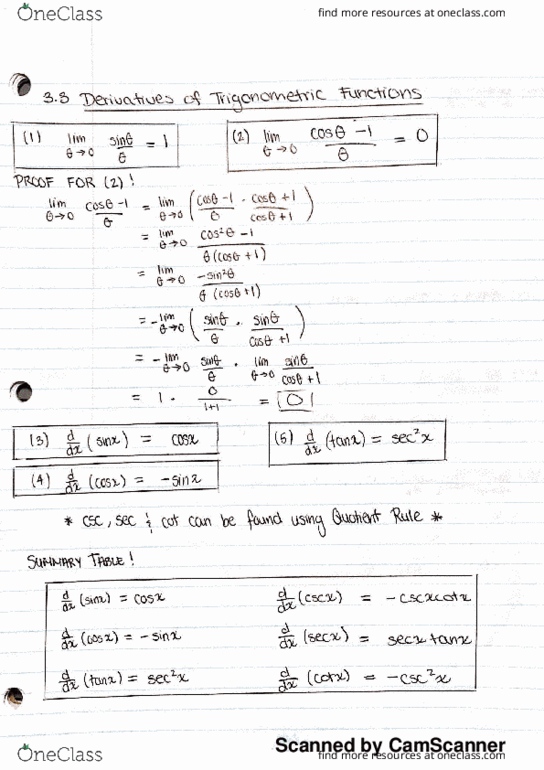 OneClass find more resources at oneclass.com
3.3 Derivatives of Trigonometric Functions
(1) lim θ→0 sinθ/θ = 1 (2) lim θ→0 cosθ-1/θ = 0
PROOF FOR (2)!
lim θ→0 cosθ-1/θ = lim θ→0 (cosθ-1/θ · cosθ+1/cosθ+1)
= lim θ→0 cos²θ-1/θ(cosθ+1)
= lim θ→0 -sin²θ/θ(cosθ+1)
= -lim θ→0 (sinθ/θ · sinθ/cosθ+1)
= -lim θ→0 sinθ/θ · lim θ→0 sinθ/cosθ+1
= 1 · 0/1+1 = 0
(3) d/dx (sinx) = cosx (5) d/dx (tanx) = sec²x
(4) d/dx (cosx) = -sinx
* csc, sec & cot can be found using Quotient Rule *
SUMMARY TABLE!
d/dx (sinx) = cosx d/dx (cscx) = -cscxcotx
d/dx (cosx) = -sinx d/dx (secx) = secxtanx
d/dx (tanx) = sec²x d/dx (cotx) = -csc²x
Scanned by CamScanner
OneClass find more resources at oneclass.com